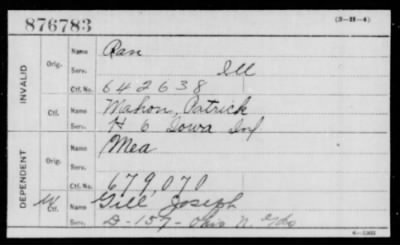 876783
(3-H-4)
INVALID
Orig.
Name
Ran
Serv.
Ill
Ctf. No.
642638
Ctf.
Name
Mahon, Patrick
Serv.
H 6 Iowa Inf
DEPENDENT
Orig.
Name
Mea
Serv.
Ctf. No.
679,070
Ctf.
Name
Gill Joseph
Serv.
D-157- Ohio N. Gds